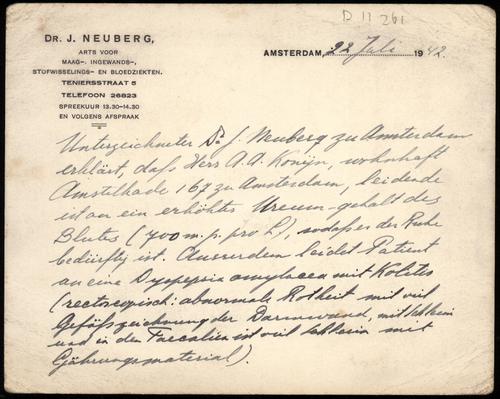 D 11 261
DR. J. NEUBERG,
ARTS VOOR
MAAG-, INGEWANDS-,
STOFWISSELINGS- EN BLOEDZIEKTEN.
TENIERSSTRAAT 5
TELEFOON 26823
SPREEKUUR 13.30-14.30
EN VOLGENS AFSPRAAK
AMSTERDAM, 22 Juli 1942.
Unterzeichneter Dr J. Neuberg zu Amsterdam
erklärt, dass Herr A. A. Konijn, wohnhaft
Amstelkade 167 zu Amsterdam, leidende
ist an ein erhöhtes Ureum-gehalt des
Blutes (700 m.p. pro L), sodass er der Ruhe
bedürftig ist. Ausserdem leidet Patient
an eine Dyspepsia amylacea mit Kolitis
(rectoscopisch: abnormale Rotheit mit viel
Gefäßzeichnung der Darmwand, mit Schleim
und in den Faecalien ist viel Schleim mit
Gährungsmaterial).